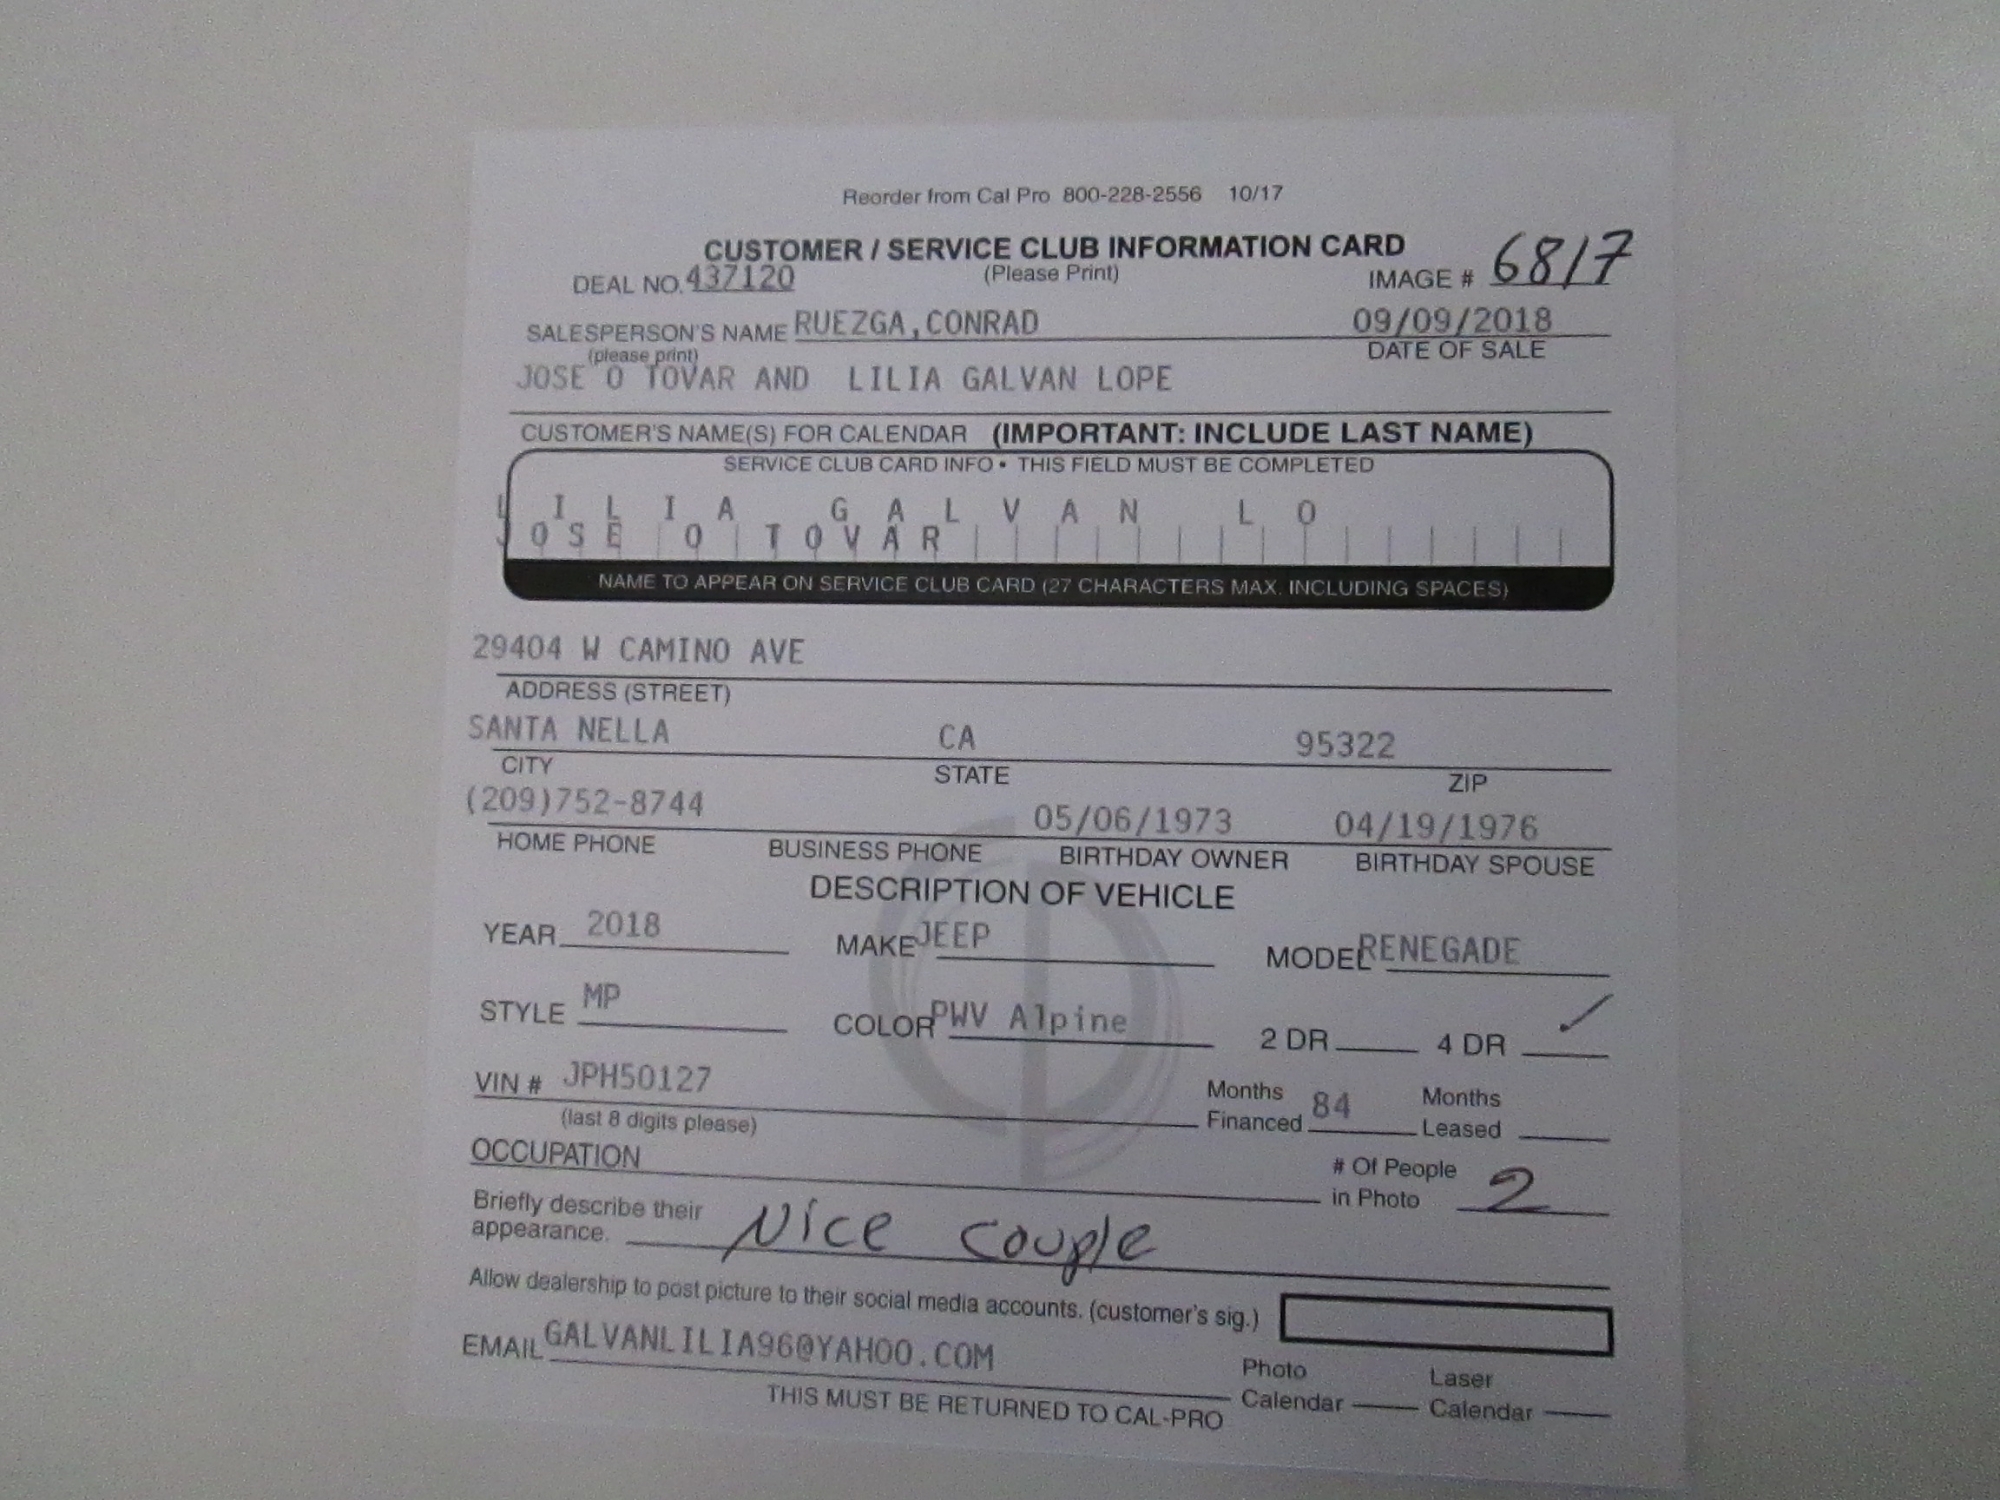 Reorder from Cal Pro 800-228-2556 10/17
CUSTOMER / SERVICE CLUB INFORMATION CARD
(Please Print)
DEAL NO. 437120
IMAGE # 6817
SALESPERSON'S NAME RUEZGA,CONRAD 09/09/2018
(please print) DATE OF SALE
JOSE O TOVAR AND LILIA GALVAN LOPE
CUSTOMER'S NAME(S) FOR CALENDAR (IMPORTANT: INCLUDE LAST NAME)
SERVICE CLUB CARD INFO • THIS FIELD MUST BE COMPLETED
LILIA GALVAN LO
JOSE O TOVAR
NAME TO APPEAR ON SERVICE CLUB CARD (27 CHARACTERS MAX. INCLUDING SPACES)
29404 W CAMINO AVE
ADDRESS (STREET)
SANTA NELLA CA 95322
CITY STATE ZIP
(209)752-8744 05/06/1973 04/19/1976
HOME PHONE BUSINESS PHONE BIRTHDAY OWNER BIRTHDAY SPOUSE
DESCRIPTION OF VEHICLE
YEAR 2018 MAKE JEEP MODEL RENEGADE
STYLE MP COLOR PWV Alpine 2 DR 4 DR ✓
VIN # JPH50127 Months Financed 84 Months Leased
(last 8 digits please)
OCCUPATION # Of People in Photo 2
Briefly describe their appearance. Nice couple
Allow dealership to post picture to their social media accounts. (customer's sig.)
EMAIL GALVANLILIA96@YAHOO.COM
Photo Calendar Laser Calendar
THIS MUST BE RETURNED TO CAL-PRO